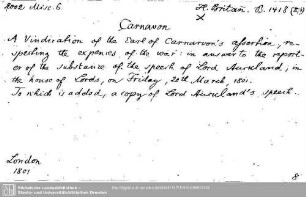 8002 Misc. 6.
H. Britan. B. 1418 (8,9)
X
Carnarvon
A Vindication of the Earl of Carnarvon's assertion, re-
specting the expenses of the war: in answer to the report-
er of the substance of the speech of Lord Auckland, in
the house of Lords, on Friday, 20th March, 1801.
To which is added, a copy of Lord Auckland's speech.
London
1801
8
Sächsische Landesbibliothek -
Staats- und Universitätsbibliothek Dresden